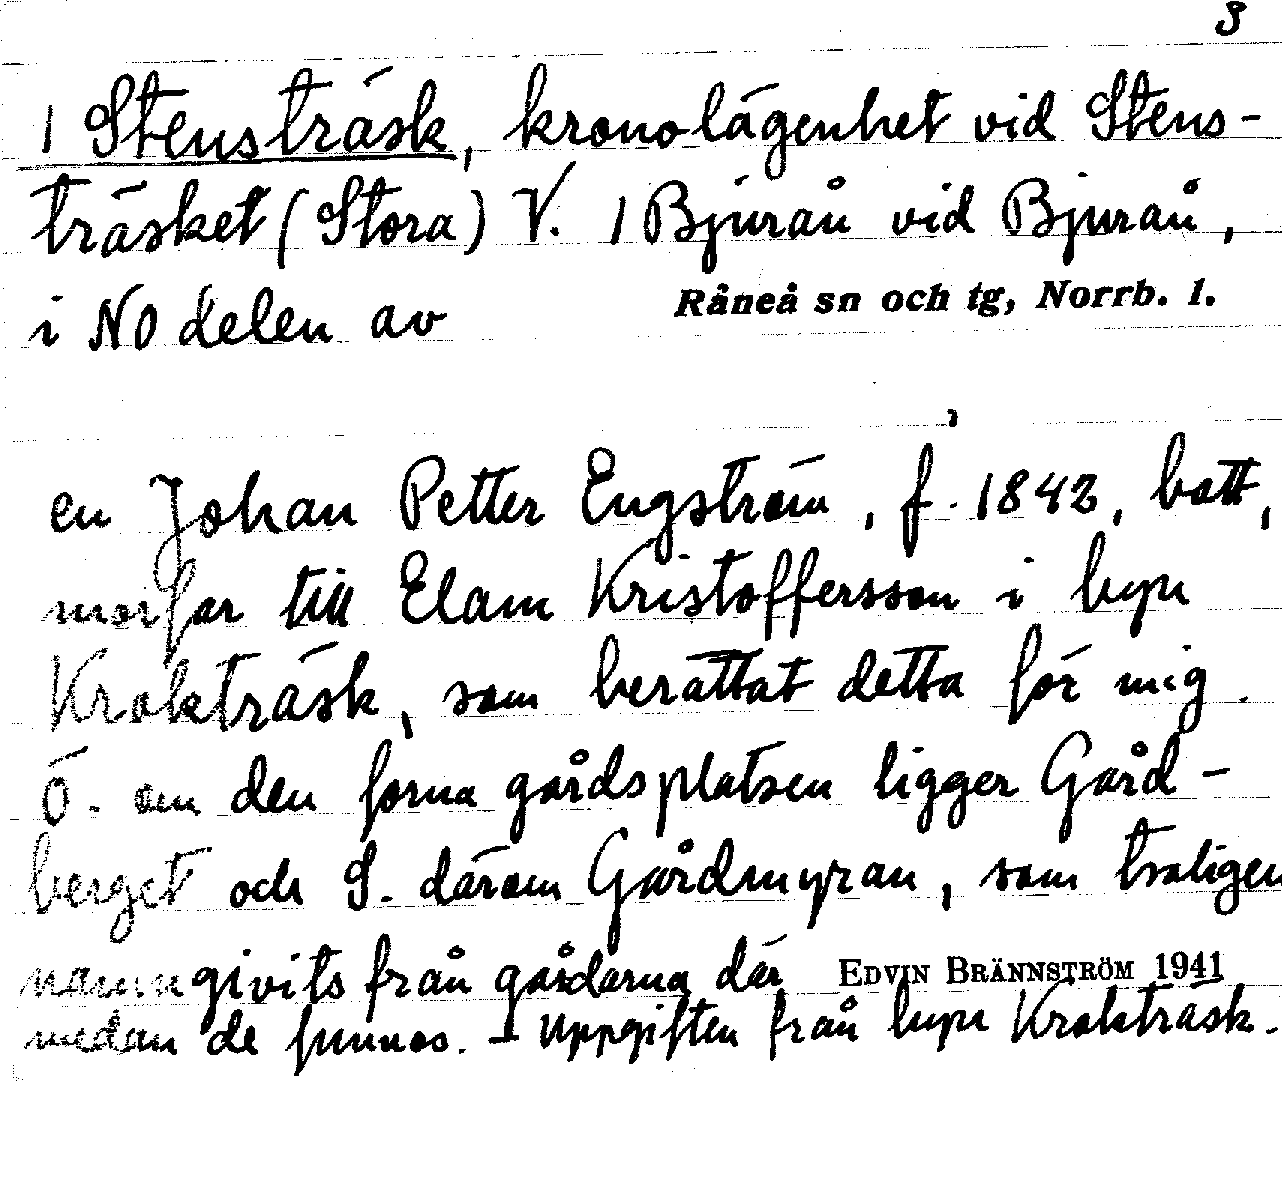 3
1 Stensträsk, kronolägenhet vid Stens-
träsket (Stora) V. 1 Bjurån vid Bjurån,
i NO delen av Råneå sn och tg, Norrb. l.
en Johan Petter Engström, f. 1842, bott,
morfar till Elam Kristoffersson i byn
Krokträsk, som berättat detta för mig.
Ö. om den forna gårdsplatsen ligger Gård-
berget och S. därom Gårdmyran, som troligen
namngivits från gårdarna där EDVIN BRÄNNSTRÖM 1941
medan de funnos. – Uppgiften från byn Krokträsk.